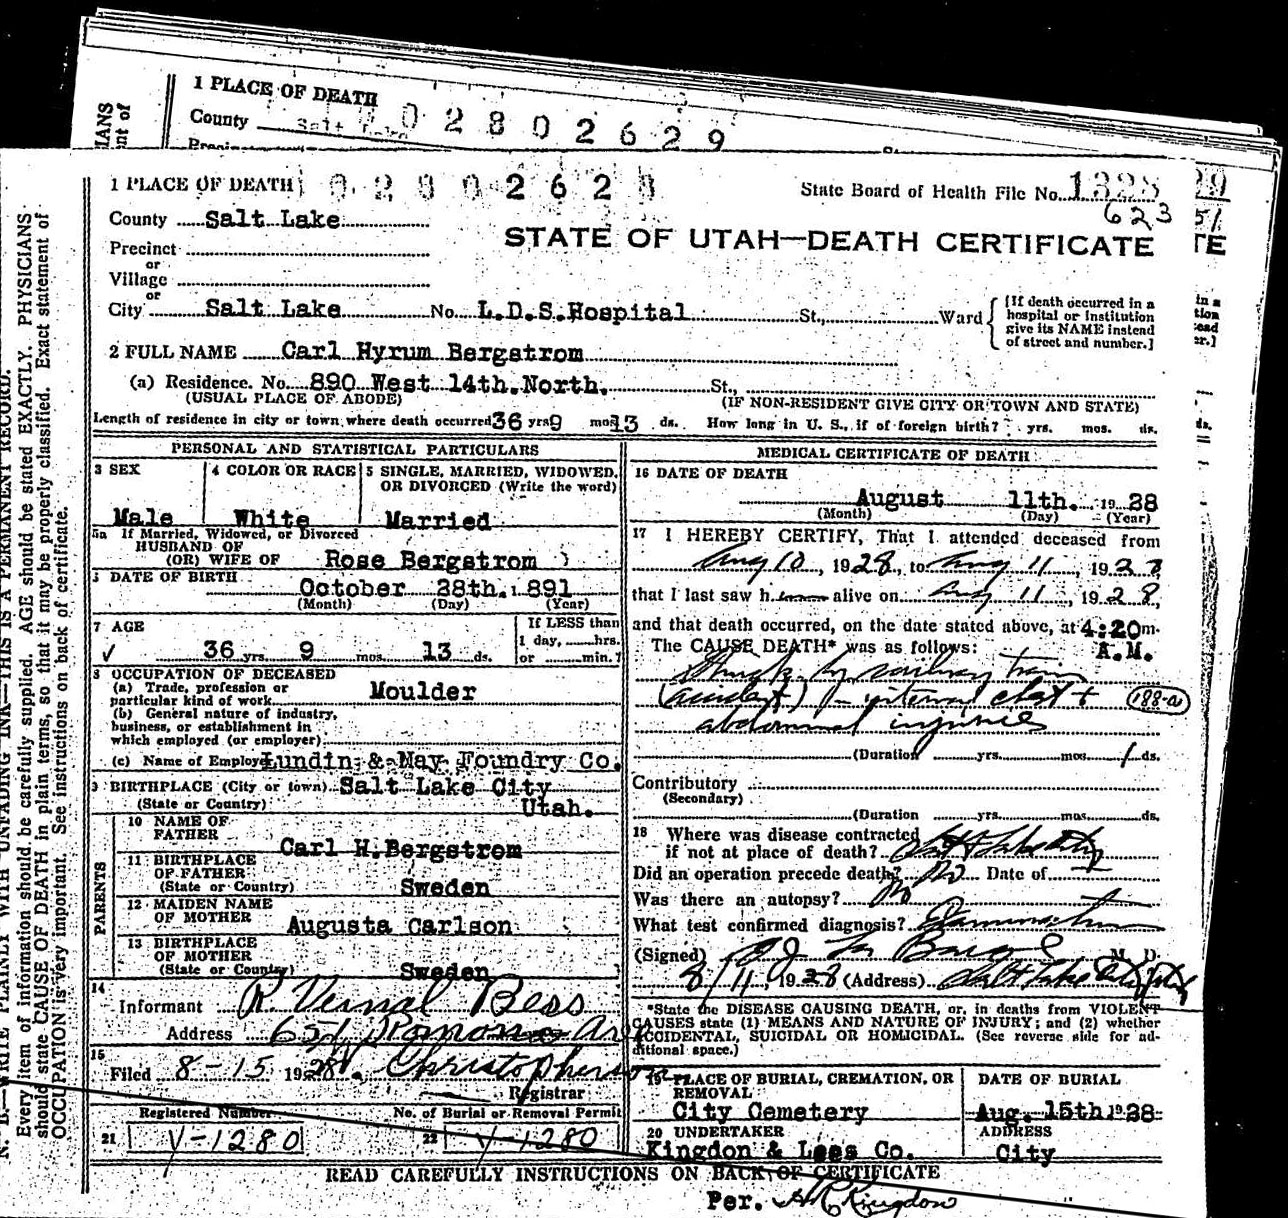 1 PLACE OF DEATH 0 2 8 0 2 6 2 9
County Salt Lake
IANS
nt of
1 PLACE OF DEATH 0 2 8 0 2 6 2
State Board of Health File No. 1328 29
623 51
County Salt Lake
STATE OF UTAH—DEATH CERTIFICATE TE
Precinct
or
Village
or
City Salt Lake No. L.D.S. Hospital St., Ward
[If death occurred in a
hospital or institution
give its NAME instead
of street and number.]
2 FULL NAME Carl Hyrum Bergstrom
(a) Residence. No. 890 West 14th. North. St.,
(USUAL PLACE OF ABODE) (IF NON-RESIDENT GIVE CITY OR TOWN AND STATE)
Length of residence in city or town where death occurred 36 yrs 9 mos 13 ds. How long in U. S., if of foreign birth? yrs. mos. ds.
PERSONAL AND STATISTICAL PARTICULARS
3 SEX
Male
4 COLOR OR RACE
White
5 SINGLE, MARRIED, WIDOWED,
OR DIVORCED (Write the word)
Married
5a If Married, Widowed, or Divorced
HUSBAND OF
(OR) WIFE OF Rose Bergstrom
DATE OF BIRTH
October 28th. 1891
(Month) (Day) (Year)
7 AGE
36 yrs. 9 mos. 13 ds.
If LESS than
1 day, hrs.
or min.?
8 OCCUPATION OF DECEASED
(a) Trade, profession or
particular kind of work Moulder
(b) General nature of industry,
business, or establishment in
which employed (or employer)
(c) Name of Employer Lundin & May Foundry Co.
9 BIRTHPLACE (City or town) Salt Lake City
(State or Country) Utah.
PARENTS
10 NAME OF
FATHER
Carl H. Bergstrom
11 BIRTHPLACE
OF FATHER
(State or Country) Sweden
12 MAIDEN NAME
OF MOTHER Augusta Carlson
13 BIRTHPLACE
OF MOTHER
(State or Country) Sweden
14
Informant R. Vernal Bess
Address 651 Ramona Ave
15
Filed 8-15 1928 Christopherson
Registrar
Registered Number
21 V-1280
No. of Burial or Removal Permit
22 V-1280
MEDICAL CERTIFICATE OF DEATH
16 DATE OF DEATH
August 11th. 1928
(Month) (Day) (Year)
17 I HEREBY CERTIFY, That I attended deceased from
Aug 10, 1928, to Aug 11, 1928
that I last saw h alive on Aug 11, 1928,
and that death occurred, on the date stated above, at 4:20 m.
The CAUSE DEATH* was as follows: A.M.
Struck by railway train
(accident) internal chest + 188-a
abdominal injuries
(Duration yrs. mos. 1 ds.
Contributory
(Secondary)
(Duration yrs. mos. ds.
18 Where was disease contracted
if not at place of death? Salt Lake City
Did an operation precede death? No Date of
Was there an autopsy? No
What test confirmed diagnosis? Examination
(Signed) M. D.
8/11, 1928 (Address) Salt Lake City Utah
*State the DISEASE CAUSING DEATH, or, in deaths from VIOLENT
CAUSES state (1) MEANS AND NATURE OF INJURY; and (2) whether
ACCIDENTAL, SUICIDAL OR HOMICIDAL. (See reverse side for ad-
ditional space.)
19 PLACE OF BURIAL, CREMATION, OR
REMOVAL
City Cemetery
DATE OF BURIAL
Aug. 15th. 1928
20 UNDERTAKER
Kingdon & Lees Co.
ADDRESS
City
READ CAREFULLY INSTRUCTIONS ON BACK OF CERTIFICATE
Per. Kingdon
N. B.—WRITE PLAINLY WITH UNFADING INK—THIS IS A PERMANENT RECORD.
Every item of information should be carefully supplied. AGE should be stated EXACTLY. PHYSICIANS
should state CAUSE OF DEATH in plain terms, so that it may be properly classified. Exact statement of
OCCUPATION is very important. See instructions on back of certificate.